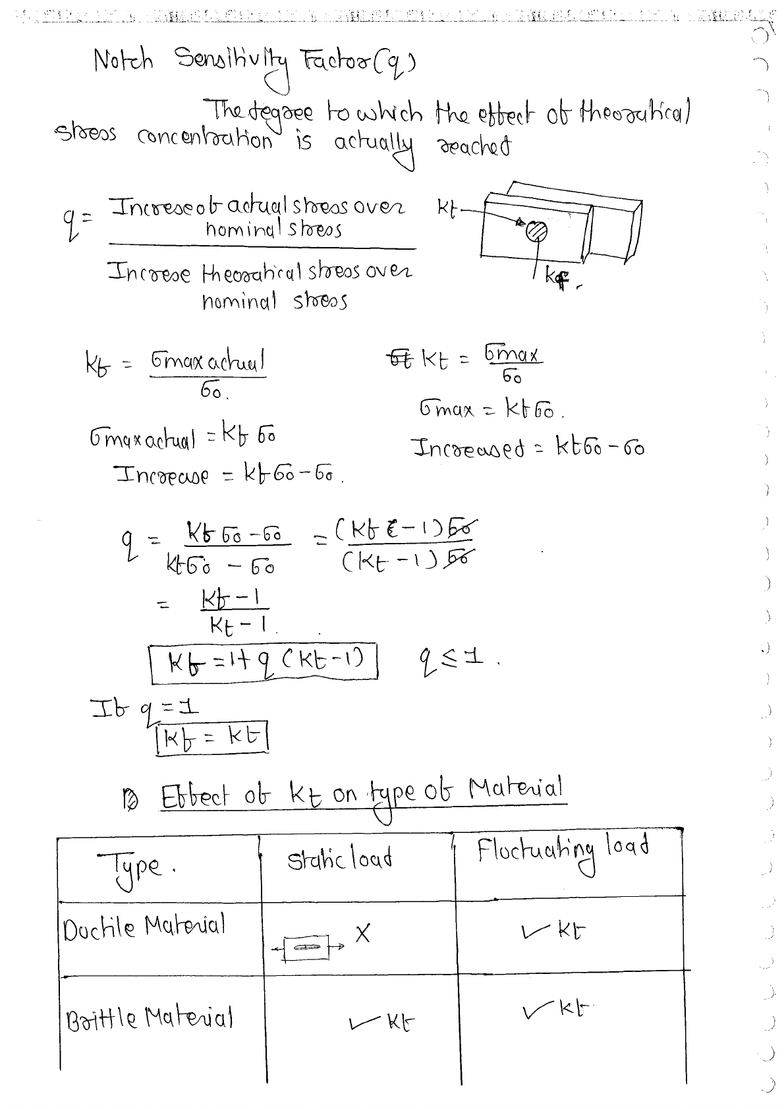 Notch Sensitivity Factor(q)
The degree to which the effect of theoratical
stress concentration is actually reached
q = Increse of actual stress over
nominal stress
Increse theoratical stress over
nominal stress
Kt
Kf.
Kf = σmax actual / σo.
σmax actual = Kf σo
Increase = Kf σo - σo.
Kt = σmax / σo
σmax = Kt σo.
Increased = Kt σo - σo
q = Kf σo - σo / Kt σo - σo = (Kf - 1) σo / (Kt - 1) σo
= Kf - 1 / Kt - 1
Kf = 1 + q (Kt - 1) q ≤ 1.
If q = 1
Kf = Kt
Effect of Kt on type of Material
Type. Static load Floctuating load
Ductile Material X ✓ Kt
Brittle Material ✓ Kt ✓ Kt